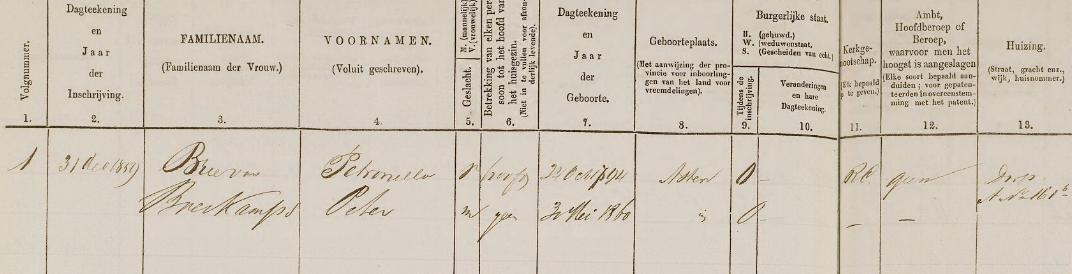 Volgnummer.
Dagteekening
en
Jaar
der
Inschrijving.
FAMILIENAAM.
(Familienaam der Vrouw.)
VOORNAMEN.
(Voluit geschreven).
Geslacht. M. (mannelijk) V. (vrouwelijk)
Betrekking van elken persoon tot het hoofd van het huisgezin.
(Niet in te vullen voor afzonderlijk levende).
Dagteekening
en
Jaar
der
Geboorte.
Geboorteplaats.
(Met aanwijzing der pro-
vincie voor inboorlin-
gen van het land voor
vreemdelingen).
Burgerlijke staat.
H. (gehuwd.)
W. (weduwenstaat.
S. (Gescheiden van echt.)
Tijdens de inschrijving.
Veranderingen
en hare
Dagteekening.
Kerkge-
nootschap.
te geven.)
Ambt,
Hoofdberoep of
Beroep,
waarvoor men het
hoogst is aangeslagen
(Elke soort bepaald aan-
duiden; voor gepaten-
teerden in overeenstem-
ming met het patent.)
Huizing.
(Straat, gracht enz.,
wijk, huisnummer.)
1. 2. 3. 4. 5. 6. 7. 8. 9. 10. 11. 12. 13.
1 31 Dec 1859 Petronella v hoofd 22 Oct Asten O – R.K. geen
Peter m geen 30 Mei 1860 O – – –